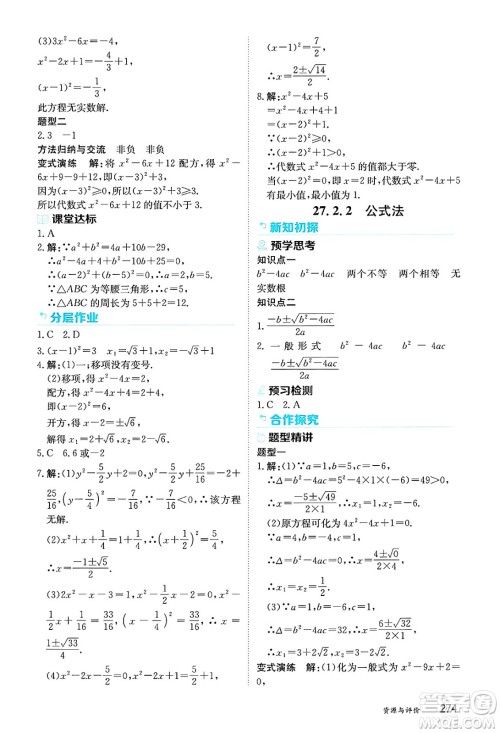 (3)3x²-6x=-4,
x²-2x=-4/3,x²-2x+1=-4/3+1,
(x-1)²=-1/3,
此方程无实数解.
题型二
2.3 -1
方法归纳与交流 非负 非负
变式演练 解:将 x²-6x+12 配方,得 x²-
6x+9-9+12=(x-3)²+3,
因为(x-3)²≥0,所以(x-3)²+3≥3,
因此 x²-6x+12 的值不会小于 3.
课堂达标
1.A
2.解:∵a²+b²=4a+10b-29,
∴a²-4a+4+b²-10b+25=0,
∴(a-2)²+(b-5)²=0,
∴a=2,b=5.
∵△ABC 为等腰三角形,
∴△ABC 的周长为 5+5+2=12.
分层作业
1.C 2.D
3.(x-1)²=3 x=1±√3
4.解:(1)一 移项没有变号.
(2)移项,得 x²-4x=2,
配方,得 x²-4x+4=2+4,
即(x-2)²=6,
开方,得 x-2=±√6,
解得 x₁=2+√6,x₂=2-√6.
5.C 6.6 或-2
7.解:(1)y²-5/2y+2=0,y²-5/2y+
25/16=-2+25/16,(y-5/4)²=-7/16,∵-7/16<0,∴方程
无解.
(2)x²+1/2x+1/16=1/4+1/16,(x+1/4)²=5/16,
∴x=(-1±√5)/4.
(3)2x²-x-3=1,2x²-x-4=0,
x²-1/2x+1/16=2+1/16,(x-1/4)²=33/16,∴x
=(1±√33)/4.
(4)x²-2x=5/2,x²-2x+1=5/2+1,
(x-1)²=7/2,x-1=±√14/2,
∴x=(2±√14)/2.
8.解:x²-4x+5
=x²-4x+4+1
=(x-2)²+1.
∵(x-2)²≥0,
∴(x-2)²+1>0,
∴代数式 x²-4x+5 的值大于零.
当(x-2)²=0,即 x=2 时,代数式 x²-4x+5 有
最小值,最小值为 1.
27.2.2 公式法
新知初探
预学思考
知识点一
b²-4ac b²-4ac 两个不等 两个相等 无
实数根
知识点二
1.(-b±√(b²-4ac))/2a
2.一般形式 b²-4ac b²-4ac
(-b±√(b²-4ac))/2a
预习检测
1.C 2.A
合作探究
题型精讲
题型一
1.解:(1)∵a=2,b=5,c=-3,
∴Δ=b²-4ac=5²-4×2×(-3)=49>0,
∴x=(-5±√49)/(2×1),
∴x₁=1/2,x₂=-3.
(2)原方程可化为 4x²-4x+1=0.
∵a=4,b=-4,c=1,
∴Δ=b²-4ac=(-4)²-4×4×1=0,
∴x=(4±√0)/(2×4),∴x₁=x₂=1/2.
(3)∵a=2,b=-2,c=1,
∴Δ=b²-4ac=(-2)²-4×2×1=-4<0,
∴方程无实数解.
(4)∵a=1,b=2,c=-6,
∴Δ=b²-4ac=2²-4×1×(-6)=28>0,
∴x=(-2±√28)/(2×1),
∴x₁=-1+√7,x₂=-1-√7.
变式演练 解:(1)化为一般式为 x²-9x+2
=0.
资源与评价 274